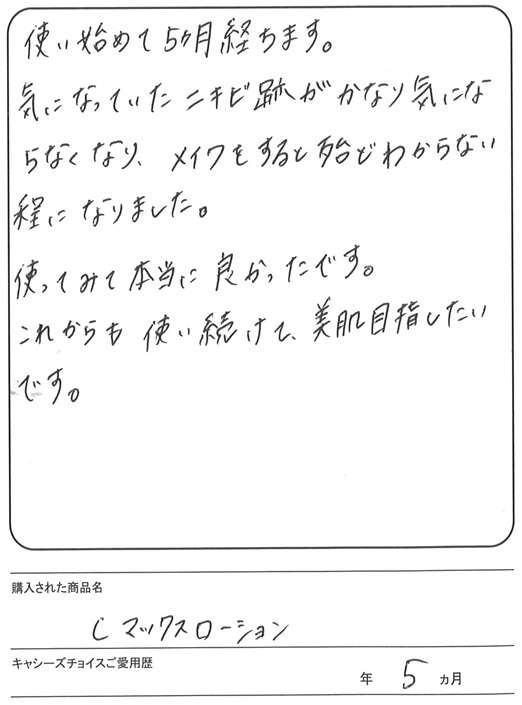 使い始めて5ヶ月経ちます。
気になっていたニキビ跡がかなり気にな
らなくなり、メイクをすると殆どわからない
程になりました。
使ってみて本当に良かったです。
これからも使い続けて、美肌目指したい
です。
購入された商品名
Cマックスローション
キャシーズチョイスご愛用歴
年 5 ヵ月